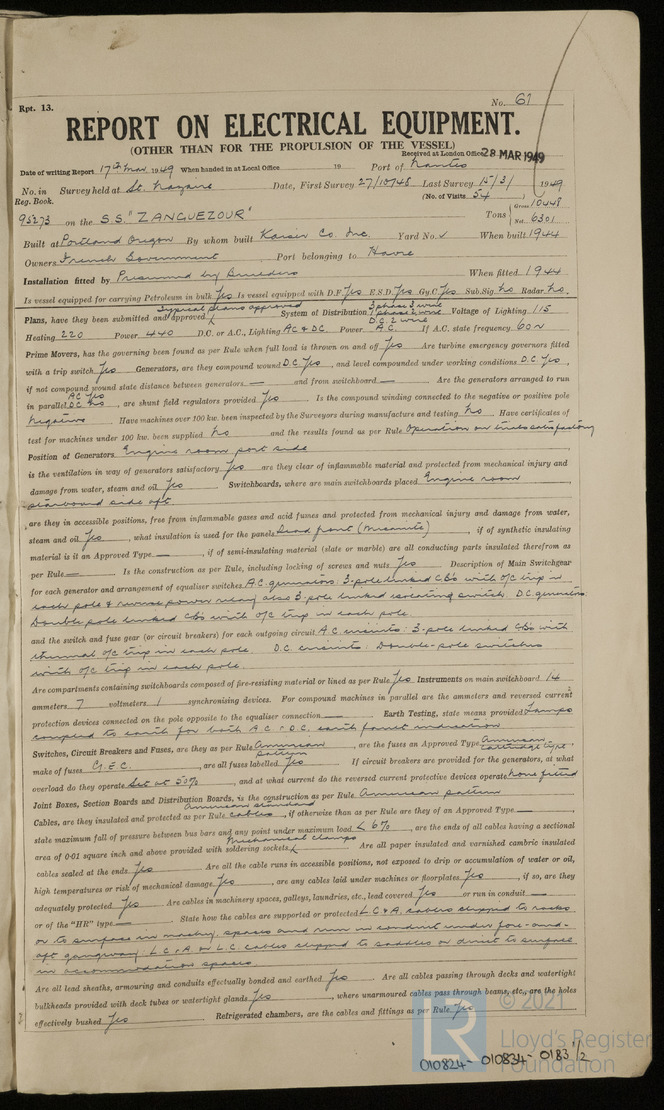 Rpt. 13.
No. 61
REPORT ON ELECTRICAL EQUIPMENT.
(OTHER THAN FOR THE PROPULSION OF THE VESSEL)
Received at London Office 28 MAR 1949
Date of writing Report 17th Mar 1949 When handed in at Local Office 19 Port of Nantes
No. in Survey held at St. Nazaire Date, First Survey 27/10/48 Last Survey 15/3/ 1949
Reg. Book. (No. of Visits 54)
95273 on the S.S. "ZANGUEZOUR" Tons { Gross 10448 Net 6301
Built at Portland Oregon By whom built Kaiser Co. Inc. Yard No. ✓ When built 1944
Owners French Government Port belonging to Havre
Installation fitted by Presumed by Builders When fitted 1944
Is vessel equipped for carrying Petroleum in bulk Yes Is vessel equipped with D.F. Yes E.S.D. Yes Gy.C. Yes Sub.Sig. No Radar No.
Typical plans approved 3 phase 3 wire
Plans, have they been submitted and approved System of Distribution 1 phase 2 wire Voltage of Lighting 115
D.C. 2 wire
Heating 220 Power 440 D.C. or A.C., Lighting AC & DC Power A.C. If A.C. state frequency 60 ~
Prime Movers, has the governing been found as per Rule when full load is thrown on and off Yes Are turbine emergency governors fitted
with a trip switch Yes Generators, are they compound wound D.C. Yes, and level compounded under working conditions D.C. Yes,
if not compound wound state distance between generators — and from switchboard — Are the generators arranged to run
in parallel AC Yes DC No, are shunt field regulators provided Yes Is the compound winding connected to the negative or positive pole
Negative Have machines over 100 kw. been inspected by the Surveyors during manufacture and testing No Have certificates of
test for machines under 100 kw. been supplied No and the results found as per Rule Operation on trials satisfactory
Position of Generators Engine room port side
is the ventilation in way of generators satisfactory Yes are they clear of inflammable material and protected from mechanical injury and
damage from water, steam and oil Yes Switchboards, where are main switchboards placed Engine room
starboard side aft
are they in accessible positions, free from inflammable gases and acid fumes and protected from mechanical injury and damage from water,
steam and oil Yes, what insulation is used for the panels Dead front (Micanite), if of synthetic insulating
material is it an Approved Type —, if of semi-insulating material (slate or marble) are all conducting parts insulated therefrom as
per Rule — Is the construction as per Rule, including locking of screws and nuts Yes Description of Main Switchgear
for each generator and arrangement of equaliser switches A.C. generators. 3-pole linked CBs with o/c trip in
each pole & reverse power relay also 3-pole linked isolating switch. D.C. generators
Double pole linked CBs with o/c trip in each pole
and the switch and fuse gear (or circuit breakers) for each outgoing circuit A.C. circuits: 3-pole linked CBs with
thermal o/c trip in each pole. D.C. circuits. Double-pole switches
with o/c trip in each pole.
Are compartments containing switchboards composed of fire-resisting material or lined as per Rule Yes Instruments on main switchboard 14
ammeters 7 voltmeters 1 synchronising devices. For compound machines in parallel are the ammeters and reversed current
protection devices connected on the pole opposite to the equaliser connection — Earth Testing, state means provided Lamps
coupled to earth for both A.C. & D.C. earth fault indication
Switches, Circuit Breakers and Fuses, are they as per Rule American pattern, are the fuses an Approved Type American cartridge type,
make of fuses G.E.C., are all fuses labelled Yes If circuit breakers are provided for the generators, at what
overload do they operate Set at 50%, and at what current do the reversed current protective devices operate None fitted
Joint Boxes, Section Boards and Distribution Boards, is the construction as per Rule American pattern
American standard
Cables, are they insulated and protected as per Rule cables, if otherwise than as per Rule are they of an Approved Type —,
state maximum fall of pressure between bus bars and any point under maximum load < 6%, are the ends of all cables having a sectional
Mechanical clamps
area of 0·01 square inch and above provided with soldering sockets Are all paper insulated and varnished cambric insulated
cables sealed at the ends Yes Are all the cable runs in accessible positions, not exposed to drip or accumulation of water or oil,
high temperatures or risk of mechanical damage Yes, are any cables laid under machines or floorplates Yes, if so, are they
adequately protected Yes Are cables in machinery spaces, galleys, laundries, etc., lead covered Yes or run in conduit —
or of the "HR" type — State how the cables are supported or protected L.C. & A. cables clipped to racks
or to surface in machy. spaces and run in conduit under fore-and-
aft gangway. L.C. & A. or L.C. cables clipped to saddles or direct to surface
in accommodation spaces
Are all lead sheaths, armouring and conduits effectually bonded and earthed Yes Are all cables passing through decks and watertight
bulkheads provided with deck tubes or watertight glands Yes, where unarmoured cables pass through beams, etc., are the holes
effectively bushed Yes Refrigerated chambers, are the cables and fittings as per Rule Yes
© 2021
LR
Lloyd's Register
Foundation
010824-010834-0183 1/2